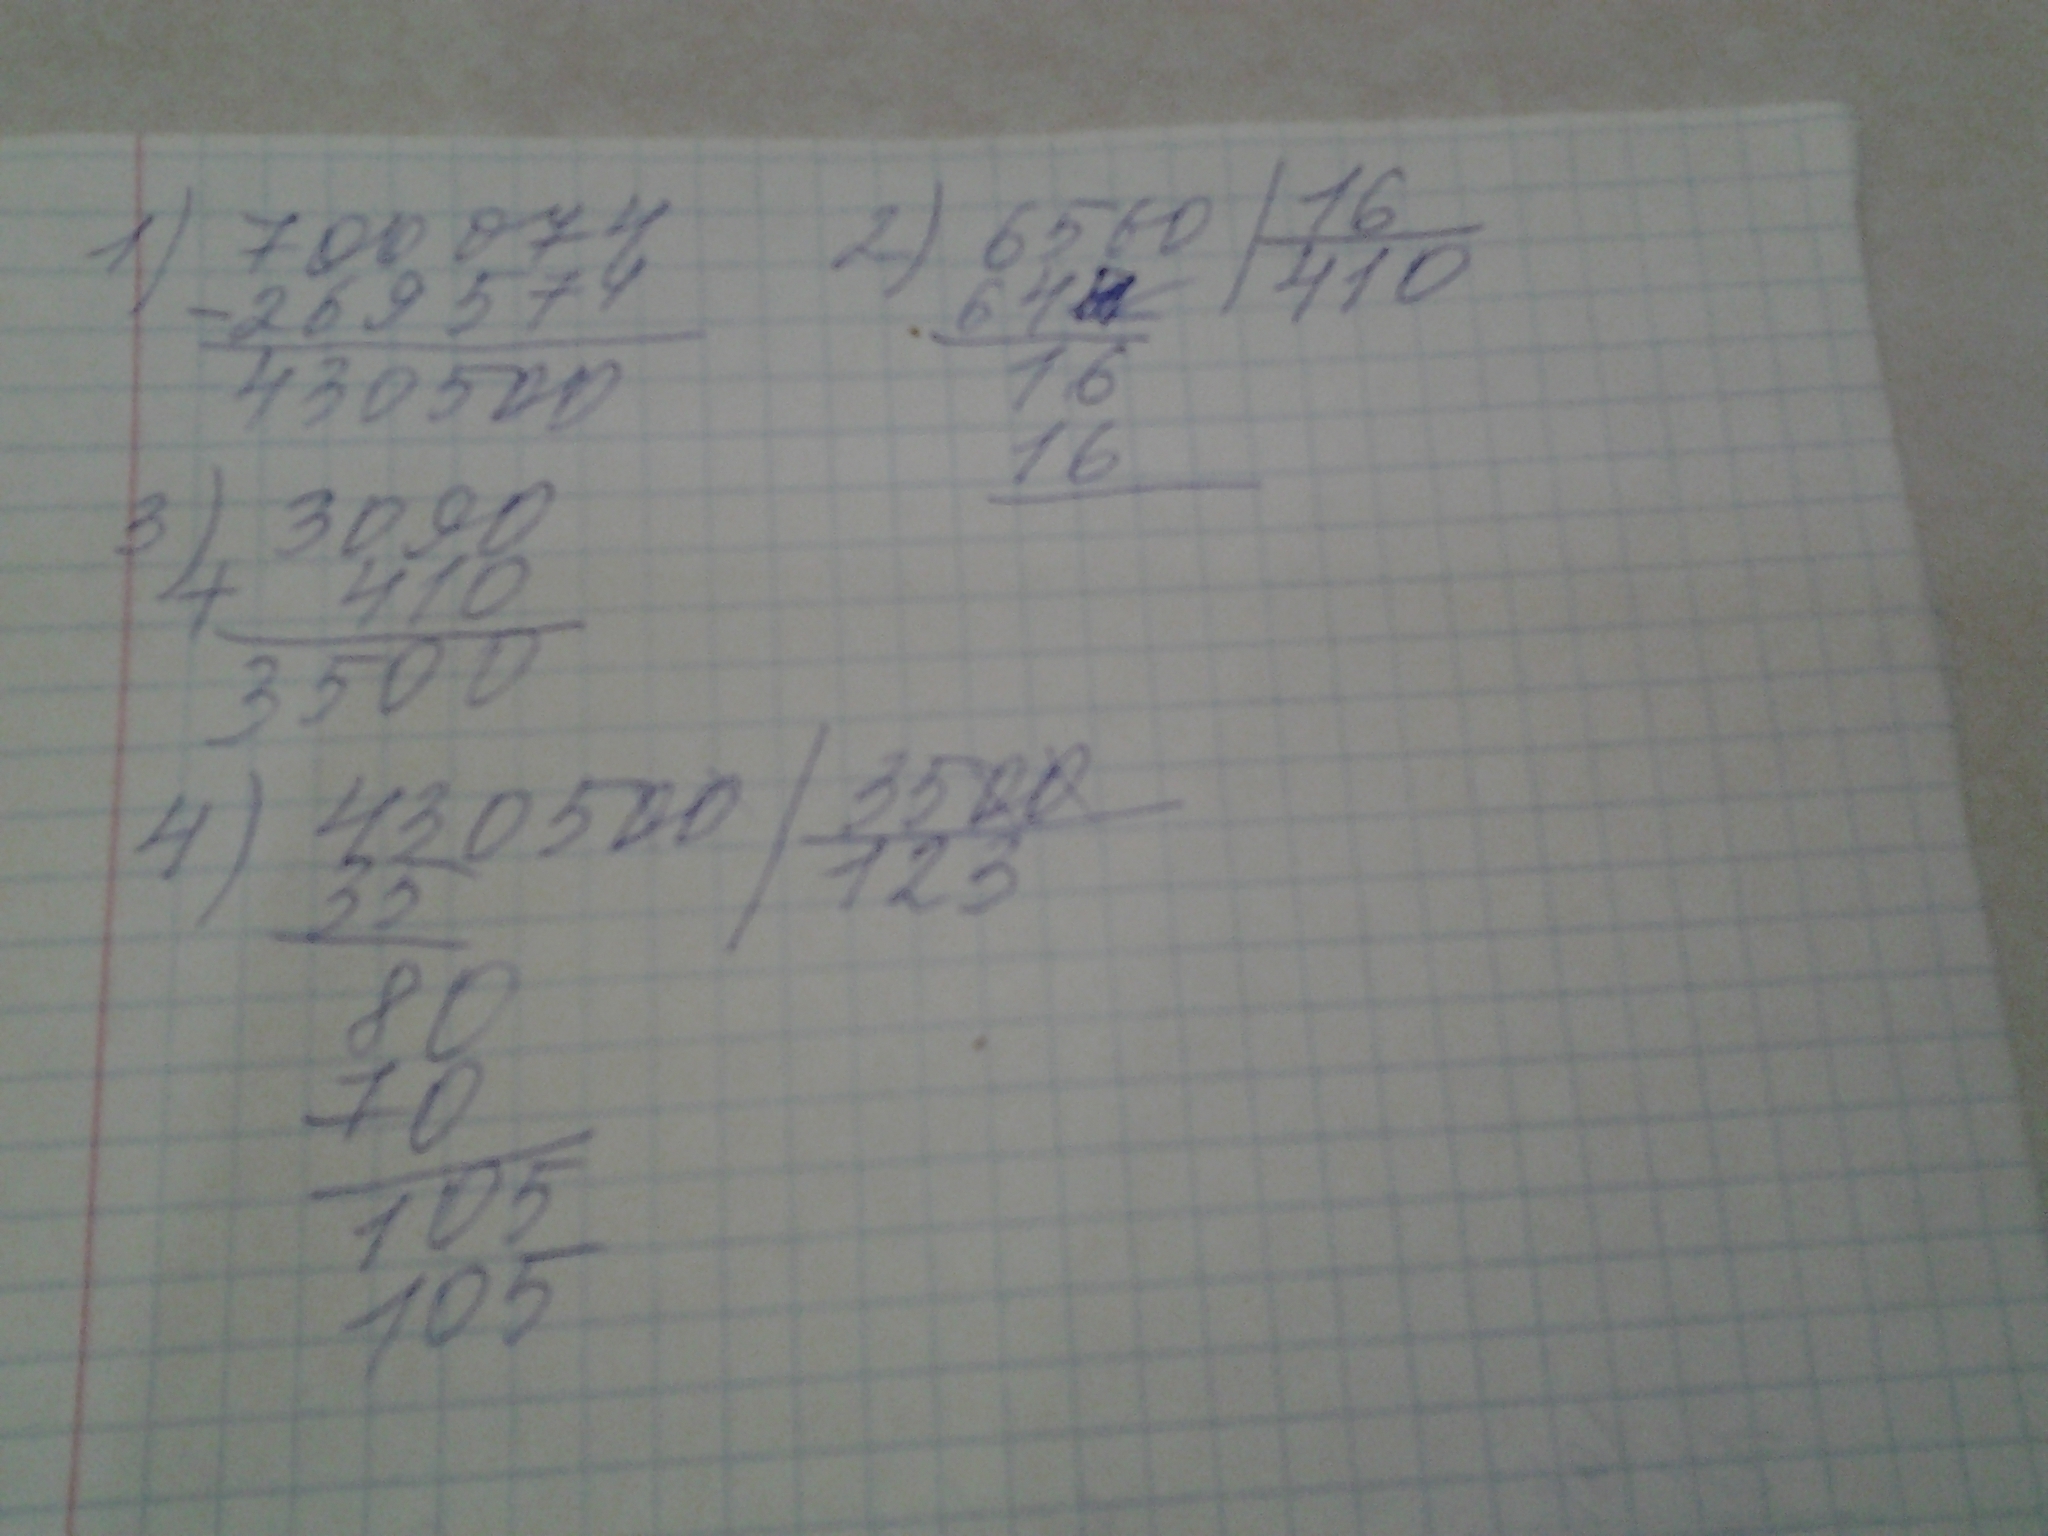 1) 700 074
- 269 574
430500
2) 6560 | 16
64 410
16
16
3) 3090
+ 410
3500
4) 430500 | 3500
35 123
80
70
105
105